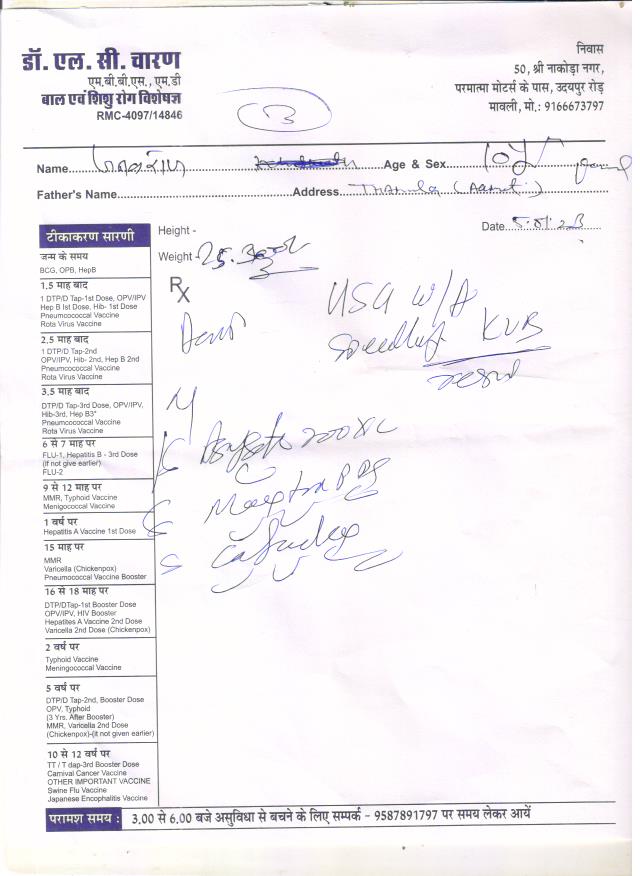 डॉ. एल. सी. चारण
एम.बी.बी.एस., एम.डी
बाल एवं शिशु रोग विशेषज्ञ
RMC-4097/14846
CB
निवास
50, श्री नाकोड़ा नगर,
परमात्मा मोटर्स के पास, उदयपुर रोड़
मावली, मो.: 9166673797
Name Age & Sex 10y
Father's Name Address
Date
Height -
Weight -
Rx
USG W/A
KUB
टीकाकरण सारणी
जन्म के समय
BCG, OPB, HepB
1.5 माह बाद
1 DTP/D Tap-1st Dose, OPV/IPV
Hep B Ist Dose, Hib- 1st Dose
Pneumococcal Vaccine
Rota Virus Vaccine
2.5 माह बाद
1 DTP/D Tap-2nd
OPV/IPV, Hib- 2nd, Hep B 2nd
Pneumococcal Vaccine
Rota Virus Vaccine
3.5 माह बाद
DTP/D Tap-3rd Dose, OPV/IPV,
Hib-3rd, Hep B3*
Pneumococcal Vaccine
Rota Virus Vaccine
6 से 7 माह पर
FLU-1, Hepatitis B - 3rd Dose
(if not give earlier)
FLU-2
9 से 12 माह पर
MMR, Typhoid Vaccine
Menigococcal Vaccine
1 वर्ष पर
Hepatitis A Vaccine 1st Dose
15 माह पर
MMR
Varicella (Chickenpox)
Pneumococcal Vaccine Booster
16 से 18 माह पर
DTP/DTap-1st Booster Dose
OPV/IPV, HIV Booster
Hepatites A Vaccine 2nd Dose
Varicella 2nd Dose (Chickenpox)
2 वर्ष पर
Typhoid Vaccine
Meningococcal Vaccine
5 वर्ष पर
DTP/D Tap-2nd, Booster Dose
OPV, Typhoid
(3 Yrs. After Booster)
MMR, Varicella 2nd Dose
(Chickenpox)-(it not given earlier)
10 से 12 वर्ष पर
TT / T dap-3rd Booster Dose
Carnival Cancer Vaccine
OTHER IMPORTANT VACCINE
Swine Flu Vaccine
Japanese Encophalitis Vaccine
परामश समय : 3.00 से 6.00 बजे असुविधा से बचने के लिए सम्पर्क - 9587891797 पर समय लेकर आयें